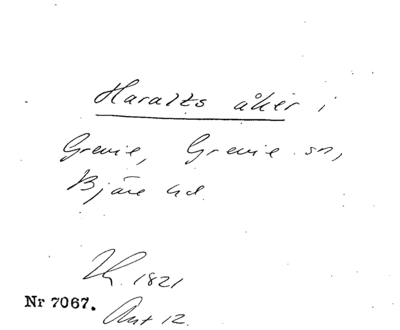 Haralts åker i
Grevie, Grevie sn,
Bjäre hd.
Th. 1821
Nr 7067.
Ant 12.